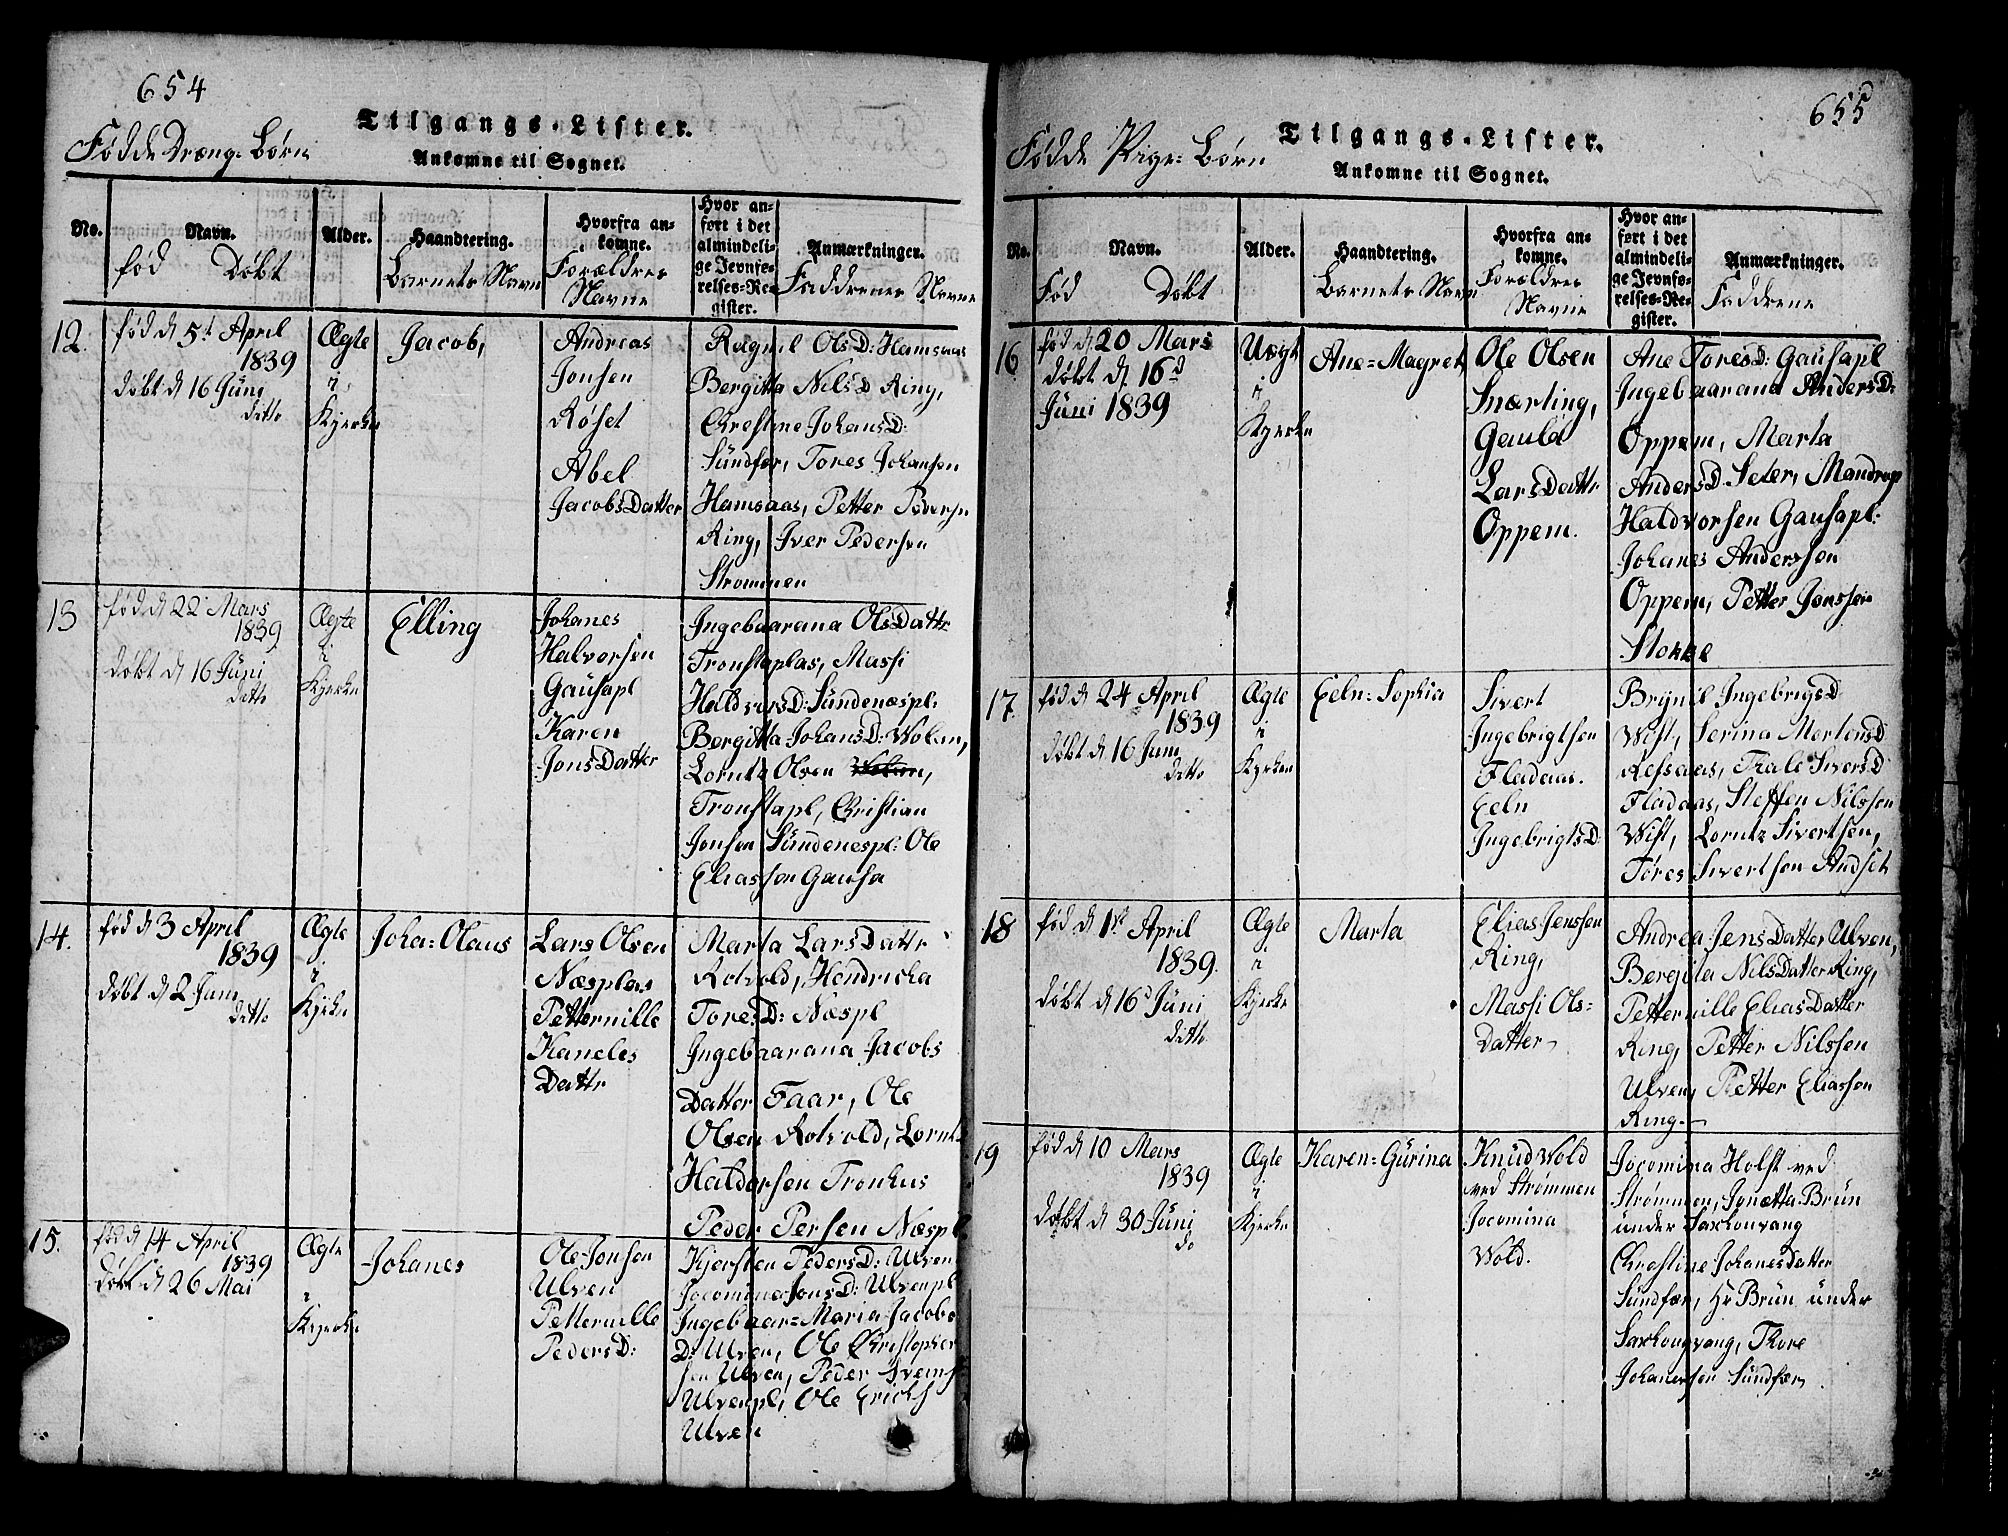 654
Tilgangs-Lister.
Fødde Dræng-Børn
Ankomne til Sognet.
No.
Navn.
Alder.
Haandtering.
Hvorfra an-
komne.
Hvor an-
ført i det
almindeli-
ge Jevnfø-
relses-Re-
gister.
Anmærkninger.
fød Døbt
Barnets Navn
Forældres
Navne
Faddrenes Navne
12.
fød d 5t April
1839
døbt d 16 Juni
ditto
Ægte
i
Kyrke
Jacob,
Andreas
Jonsen
Røset
Abel
JacobsDatter
Ragnil OlsD: Hamsaas
Bergitta NilsD Ring,
Christine JohansD:
Sundfær, Tores Johansen
Hamsaas, Petter Pedersn
Ring, Iver Pedersen
Strommen
13
fød d 22 Mars
1839
døbt d 16 Juni
ditto
Ægte
i
Kyrke
Elling
Johanes
Halvorsen
Gausapl
Karen
JonsDatter
Ingebaarana OlsDattr
Tronstaplas, Massi
HaldvorsD: Sundenæspl:
Bergitta JohansD: Wolan,
Lorntz Olsen Wolan,
Tronstapl, Christian
Jonsen Sundenespl: Ole
Eliassen Gausa
14.
fød d 3 April
1839
døbt d 2 Juni
ditto
Ægte
i
Kyrke
Joha=Olaus
Lars Olsen
Næsplas
Petternille
Kaneles
Dattr
Marta LarsDattr
Rotvold, Hendricka
ToresD: Næspl
Ingebaarana Jacobs
Datter Faar, Ole
Olsen Rotvold, Lorntz
Haldorsen Tronhus
Peder Persen Næspl
15.
fød d 14 April
1839
Døbt d 26 Mai
Ægte
i
Kyrke
Johanes
Ole Jonsen
Ulven
Petternille
PedersD:
Kjersten PedersD: Ulven
Jocomina JonsD: Ulvenpl
Ingebaar=Maria Jacobs
D: Ulven, Ole Christopher
sen Ulven, Peder Svens
Ulvenpl, Ole Ericks
Ulven
655
Tilgangs-Lister.
Fødde Pige=Børn
Ankomne til Sognet.
No.
Navn.
Alder.
Haandtering.
Hvorfra an-
komne.
Hvor an-
ført i det
almindeli-
ge Jevnfø-
relses-Re-
gister.
Anmærkninger.
Fød Døbt
Barnets Navn
Forældres
Navne
Faddrene
16
fød d 20 Mars
døbt d. 16d
Juni 1839
Uægt
i
Kyrke
Ane=Magret
Ole Olsen
Snærting,
Gaula
LarsDattr
Oppem.
Ane ToresD: Gausapl
Ingebaarana AndersD:
Oppem, Marta
AndersD. Seter, Mandrup
Haldvorsen Gausapl:
Johanes Anderssen
Oppem, Petter Jonssen
Stokke
17.
fød d 24 April
1839
døbt d 16 Juni
ditto
Ægte
i
Kyrken
Eeln=Sophia
Sivert
Ingebrigtsen
Fladaas.
Eeln
IngebrigtsD:
Brynil IngebrigsD
Wist, Serina MortensD
Refsaas, Trale SiversD
Fladaas, Steffen Nilssen
Wist, Lorntz Sivertsen,
Tøres Sivertsen Andset
18
fød d 1st April
1839.
døbt d 16d Juni
ditto
Ægte
i
Kyrke
Marta
Elias Jenssen
Ring,
Massi Ols=
Datter
Andrea JensDatter Ulven,
Bergita NilsDatter Ring,
Petternille EliasDatter
Ring, Petter Nilssen
Ulven, Petter Eliassen
Ring
19
fød d 10 Mars
1839
døbt d 30 Juni
do
Ægte
i
Kyrke
Karen=Gurina
Knud Wold
ved Strømmen
Jocomina
Wold.
Jocomina Holst ved
Strømmen, Jonetta Brun
under Saxhougvang
Christine JohanesDatter
Sundfær, Hr Brun under
Saxhougvang, Thore
Johanessen Sundfær